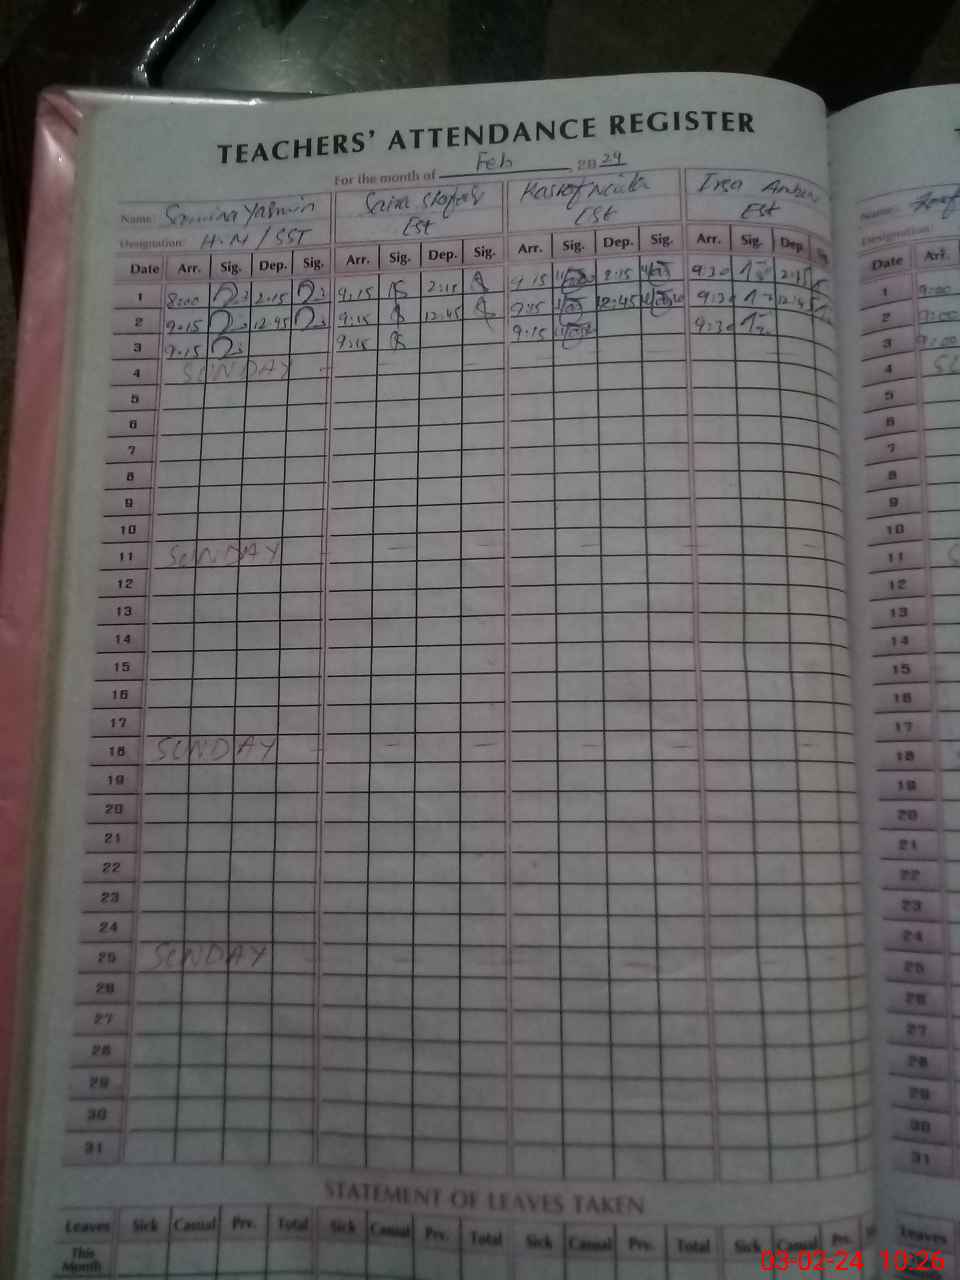 TEACHERS' ATTENDANCE REGISTER
For the month of Feb 2024
Name: Samina Yasmin Saira Kashaf Irsa
Designation: H.M / SST Est Est Est
Date Arr. Sig. Dep. Sig. Arr. Sig. Dep. Sig. Arr. Sig. Dep. Sig. Arr. Sig. Dep.
1 8:00 2:15 9:15 2:15 9:15 2:15 9:30 2:15
2 9:15 12:45 9:15 12:45 9:15 12:45 9:30 12:45
3 9:15 9:15 9:15 9:30
4 SUNDAY
5
6
7
8
9
10
11 SUNDAY
12
13
14
15
16
17
18 SUNDAY
19
20
21
22
23
24
25 SUNDAY
26
27
28
29
30
31
STATEMENT OF LEAVES TAKEN
Leaves Sick Casual Prv. Total Sick Casual Prv. Total Sick Casual Prv. Total Sick Casual Prv.
This Month
Name:
Designation:
Date Arr.
1 9:00
2 9:00
3 9:00
4
5
6
7
8
9
10
11
12
13
14
15
16
17
18
19
20
21
22
23
24
25
26
27
28
29
30
31
Leaves
03-02-24 10:26